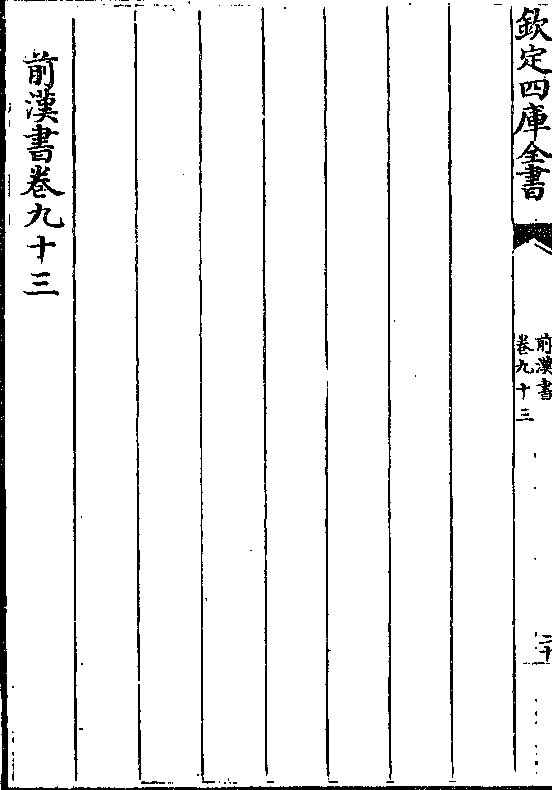 欽定四庫全書
前漢書
卷九十三
二十
前漢書卷九十三